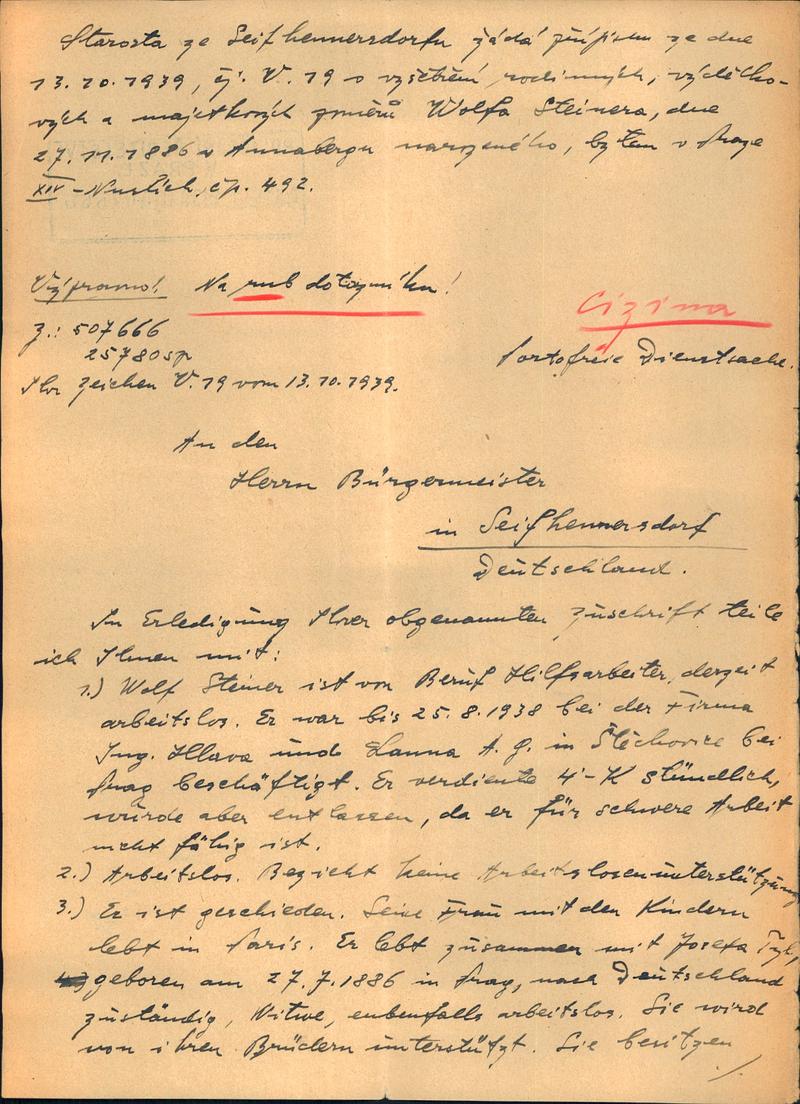 Starosta ze Seifhennersdorfu žádá přípisem ze dne
13.10.1939, čj. V. 19 o vyšetření rodinných, výdělko-
vých a majetkových poměrů Wolfa Steinera, dne
27.11.1886 v Annabergu narozeného, bytem v Praze
XIV - Nuslích, čp. 492.
Výpravno! Na rub dotazníku!
Cizina
z.: 507666
25780sp
Portofreie Dienstsache.
Ihr Zeichen V. 19 vom 13.10.1939.
An den
Herrn Bürgermeister
in Seifhennersdorf
Deutschland.
In Erledigung Ihrer obgenannten Zuschrift teile
ich Ihnen mit:
1.) Wolf Steiner ist von Beruf Hilfsarbeiter, derzeit
arbeitslos. Er war bis 25.8.1938 bei der Firma
Ing. Hlava und Lanna A. G. in Štěchovice bei
Prag beschäftigt. Er verdiente 4'-K stündlich,
wurde aber entlassen, da er für schwere Arbeit
nicht fähig ist.
2.) Arbeitslos. Bezieht keine Arbeitslosenunterstützung
3.) Er ist geschieden. Seine Frau mit den Kindern
lebt in Paris. Er lebt zusammen mit Josefa
geboren am 27.7.1886 in Prag, nach Deutschland
zuständig, Witwe, eubenfalls arbeitslos. Sie wird
von ihren Brüdern unterstützt. Sie besitzen
./.